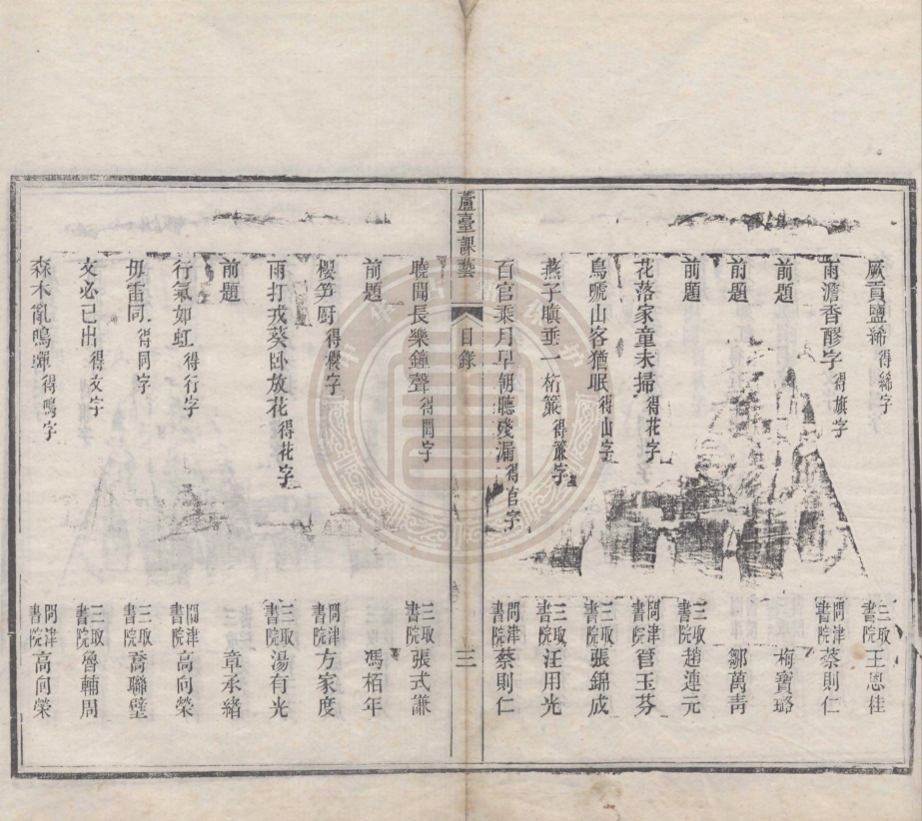 厥貢鹽絺得絺字 三取書院王恩桂
雨澹香醪字得旗字 問津書院蔡則仁
前題 梅寶璐
前題 鄒萬青
前題 三取書院趙連元
花落家童未掃得花字 問津書院管玉芬
鳥嗁山客猶眠得山字 三取書院張錦成
燕子 垂一桁簾得簾字 三取書院汪用光
百官乘月早朝聽殘漏得官字 問津書院蔡則仁
蘆臺課藝 目錄 三
曉聞長樂鐘聲得聞字 三取書院張式謙
前題 馮栢年
櫻笋廚得櫻字 問津書院方家度
雨打戎葵卧放花得花字 三取書院湯有光
前題 章承緒
行氣如虹得行字 問津書院高向榮
毋雷同得同字 三取書院喬聯璧
文必已出得文字 三取書院魯輔周
森木亂鳴蟬得鳴字 問津書院高向榮